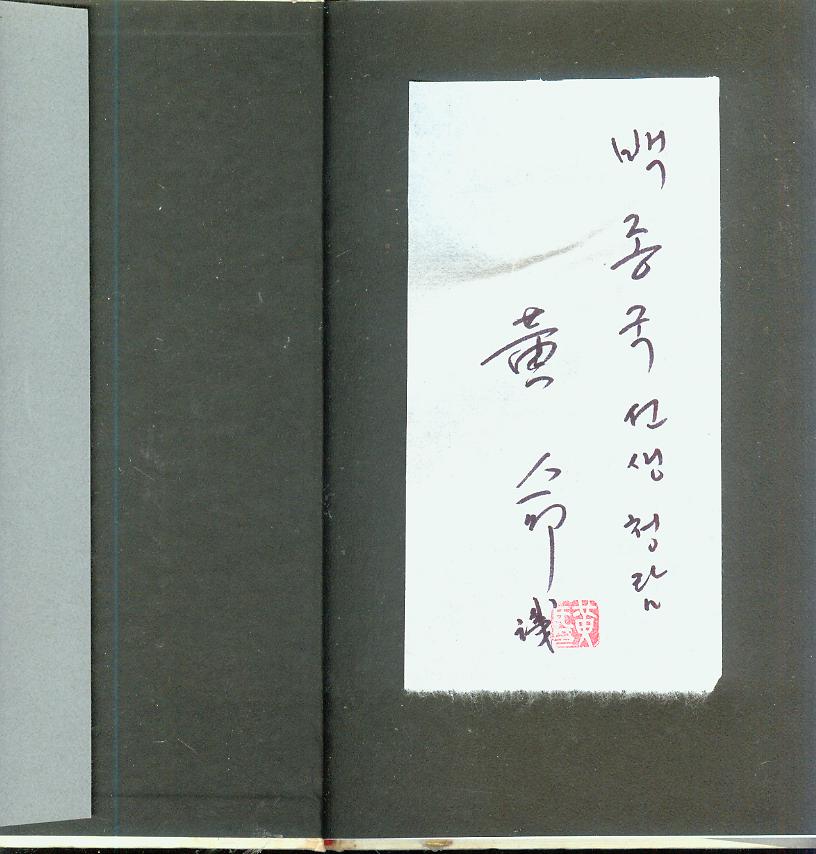 백종국 선생 청람
黃 命